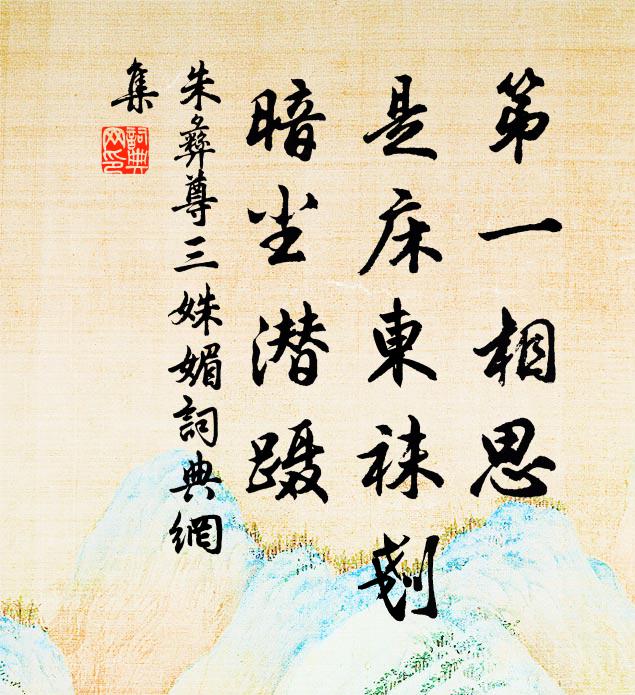 第一相思
是床東袜刬
暗尘潜蹑
朱彝尊三姝媚詞典網
集
詞典網印